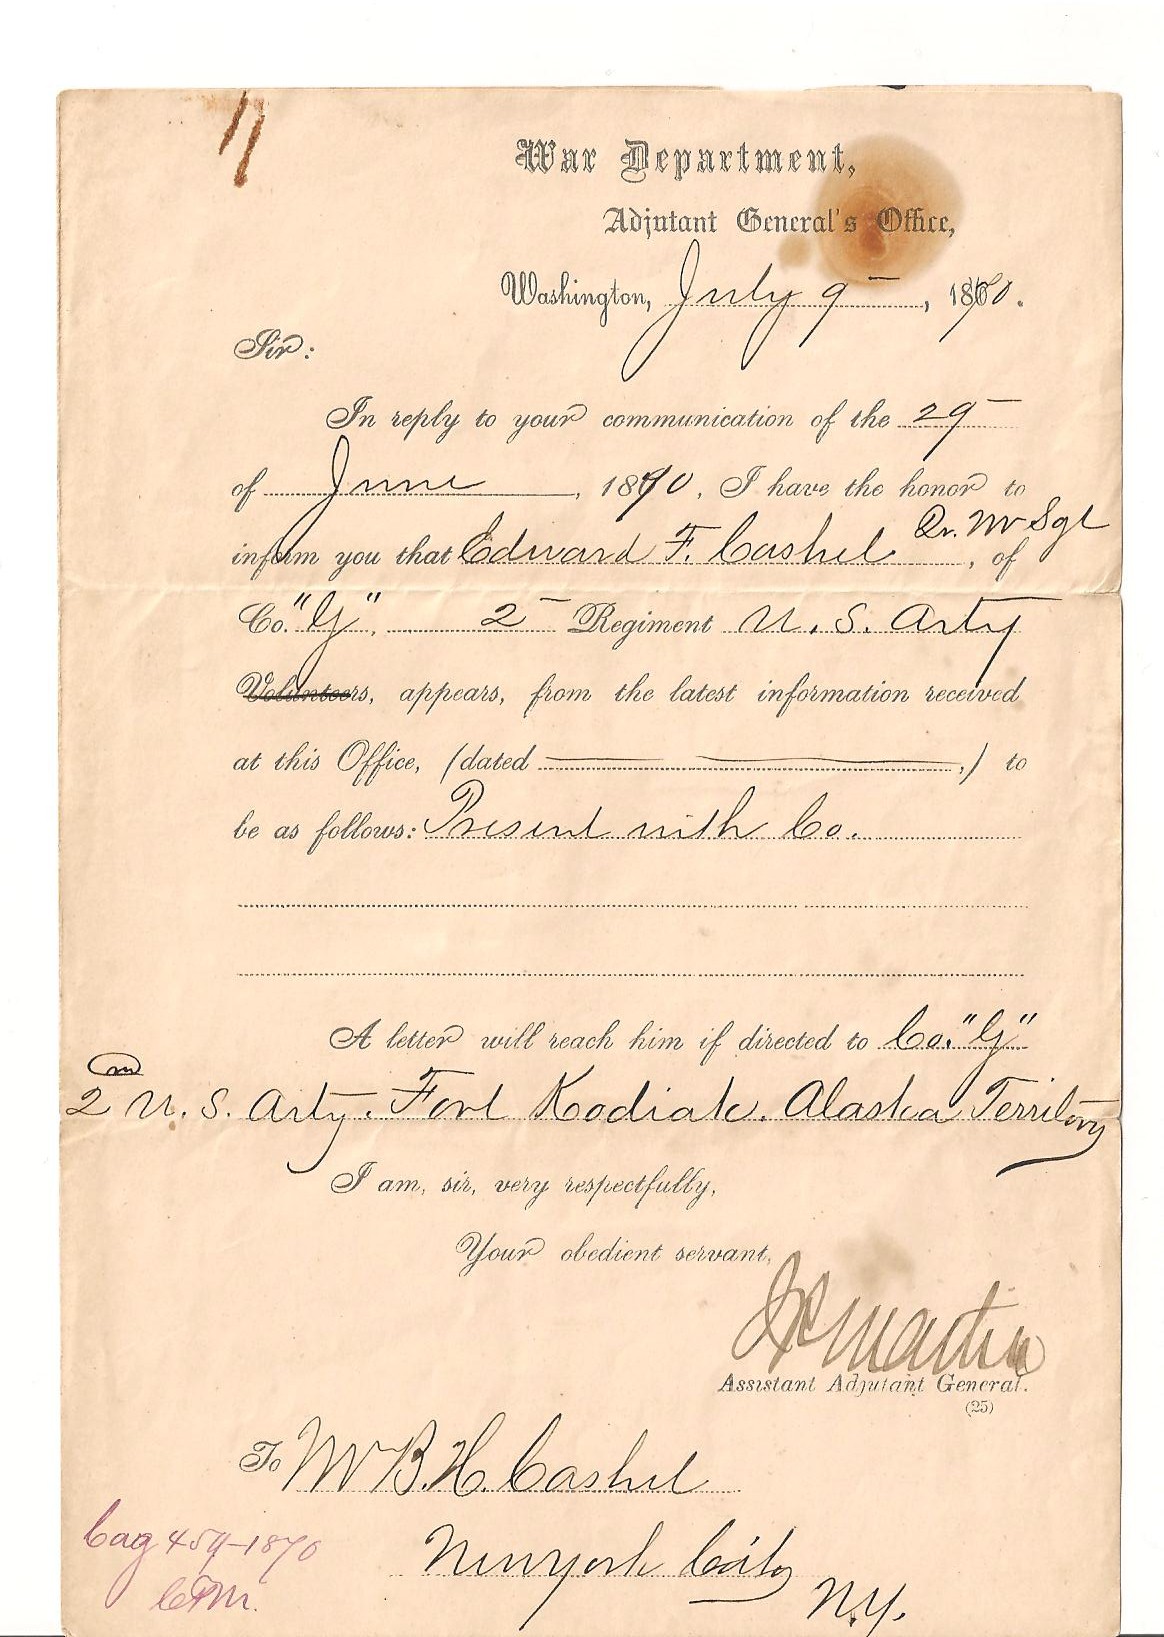 War Department,
Adjutant General's Office,
Washington, July 9, 1870.
Sir:
In reply to your communication of the 29
of June, 1870, I have the honor to
inform you that Edward F. Cashel Qr. Mr Sgt, of
Co. "G", 2 Regiment U. S. Arty
Volunteers, appears, from the latest information received
at this Office, (dated ,) to
be as follows: Present with Co.
A letter will reach him if directed to Co. "G"
2nd U. S. Arty. Fort Kodiak. Alaska Territory
I am, sir, very respectfully,
Your obedient servant,
Martin
Assistant Adjutant General.
(25)
To Mr B. H. Cashel
New York City
N.Y.
459-1870